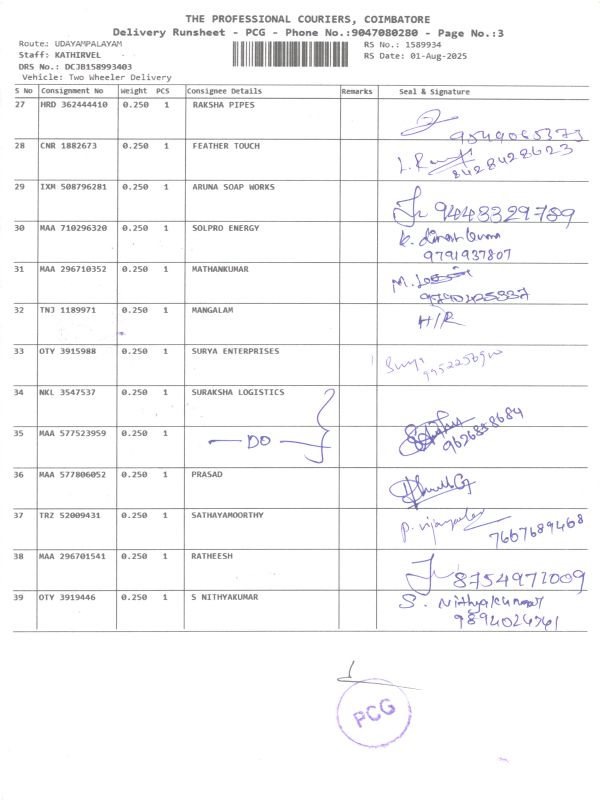 THE PROFESSIONAL COURIERS, COIMBATORE
Delivery Runsheet - PCG - Phone No.:9047080280 - Page No.:3
Route: UDAYAMPALAYAM RS No.: 1589934
Staff: KATHIRVEL RS Date: 01-Aug-2025
DRS No.: DCJB158993403
Vehicle: Two Wheeler Delivery
S No Consignment No Weight PCS Consignee Details Remarks Seal & Signature
27 HRD 362444410 0.250 1 RAKSHA PIPES
28 CNR 1882673 0.250 1 FEATHER TOUCH
8428428623
29 IXM 508796281 0.250 1 ARUNA SOAP WORKS
9448329789
30 MAA 710296320 0.250 1 SOLPRO ENERGY
9791937807
31 MAA 296710352 0.250 1 MATHANKUMAR
32 TNJ 1189971 0.250 1 MANGALAM
H/R
33 OTY 3915988 0.250 1 SURYA ENTERPRISES
34 NKL 3547537 0.250 1 SURAKSHA LOGISTICS
35 MAA 577523959 0.250 1 —DO—
9626858684
36 MAA 577806052 0.250 1 PRASAD
37 TRZ 52009431 0.250 1 SATHAYAMOORTHY
7667689468
38 MAA 296701541 0.250 1 RATHEESH
8754971009
39 OTY 3919446 0.250 1 S NITHYAKUMAR
S. Nithyakumar
PCG